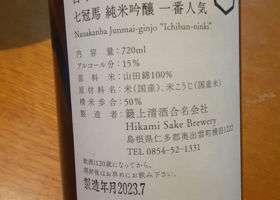 七冠馬 純米吟醸 一番人気
Nanakanba Junmai-ginjo "Ichiban-ninki"
内容量：720ml
アルコール分：15%
原料米：山田錦100%
原材料名：米（国産）、米こうじ（国産米）
精米歩合：50%
製造者：簸上清酒合名会社
Hikami Sake Brewery
島根県仁多郡奥出雲町横田1222
TEL 0854-52-1331
飲酒は20歳になってから。
開封後はお早めにお飲み下さい。
製造年月2023.7